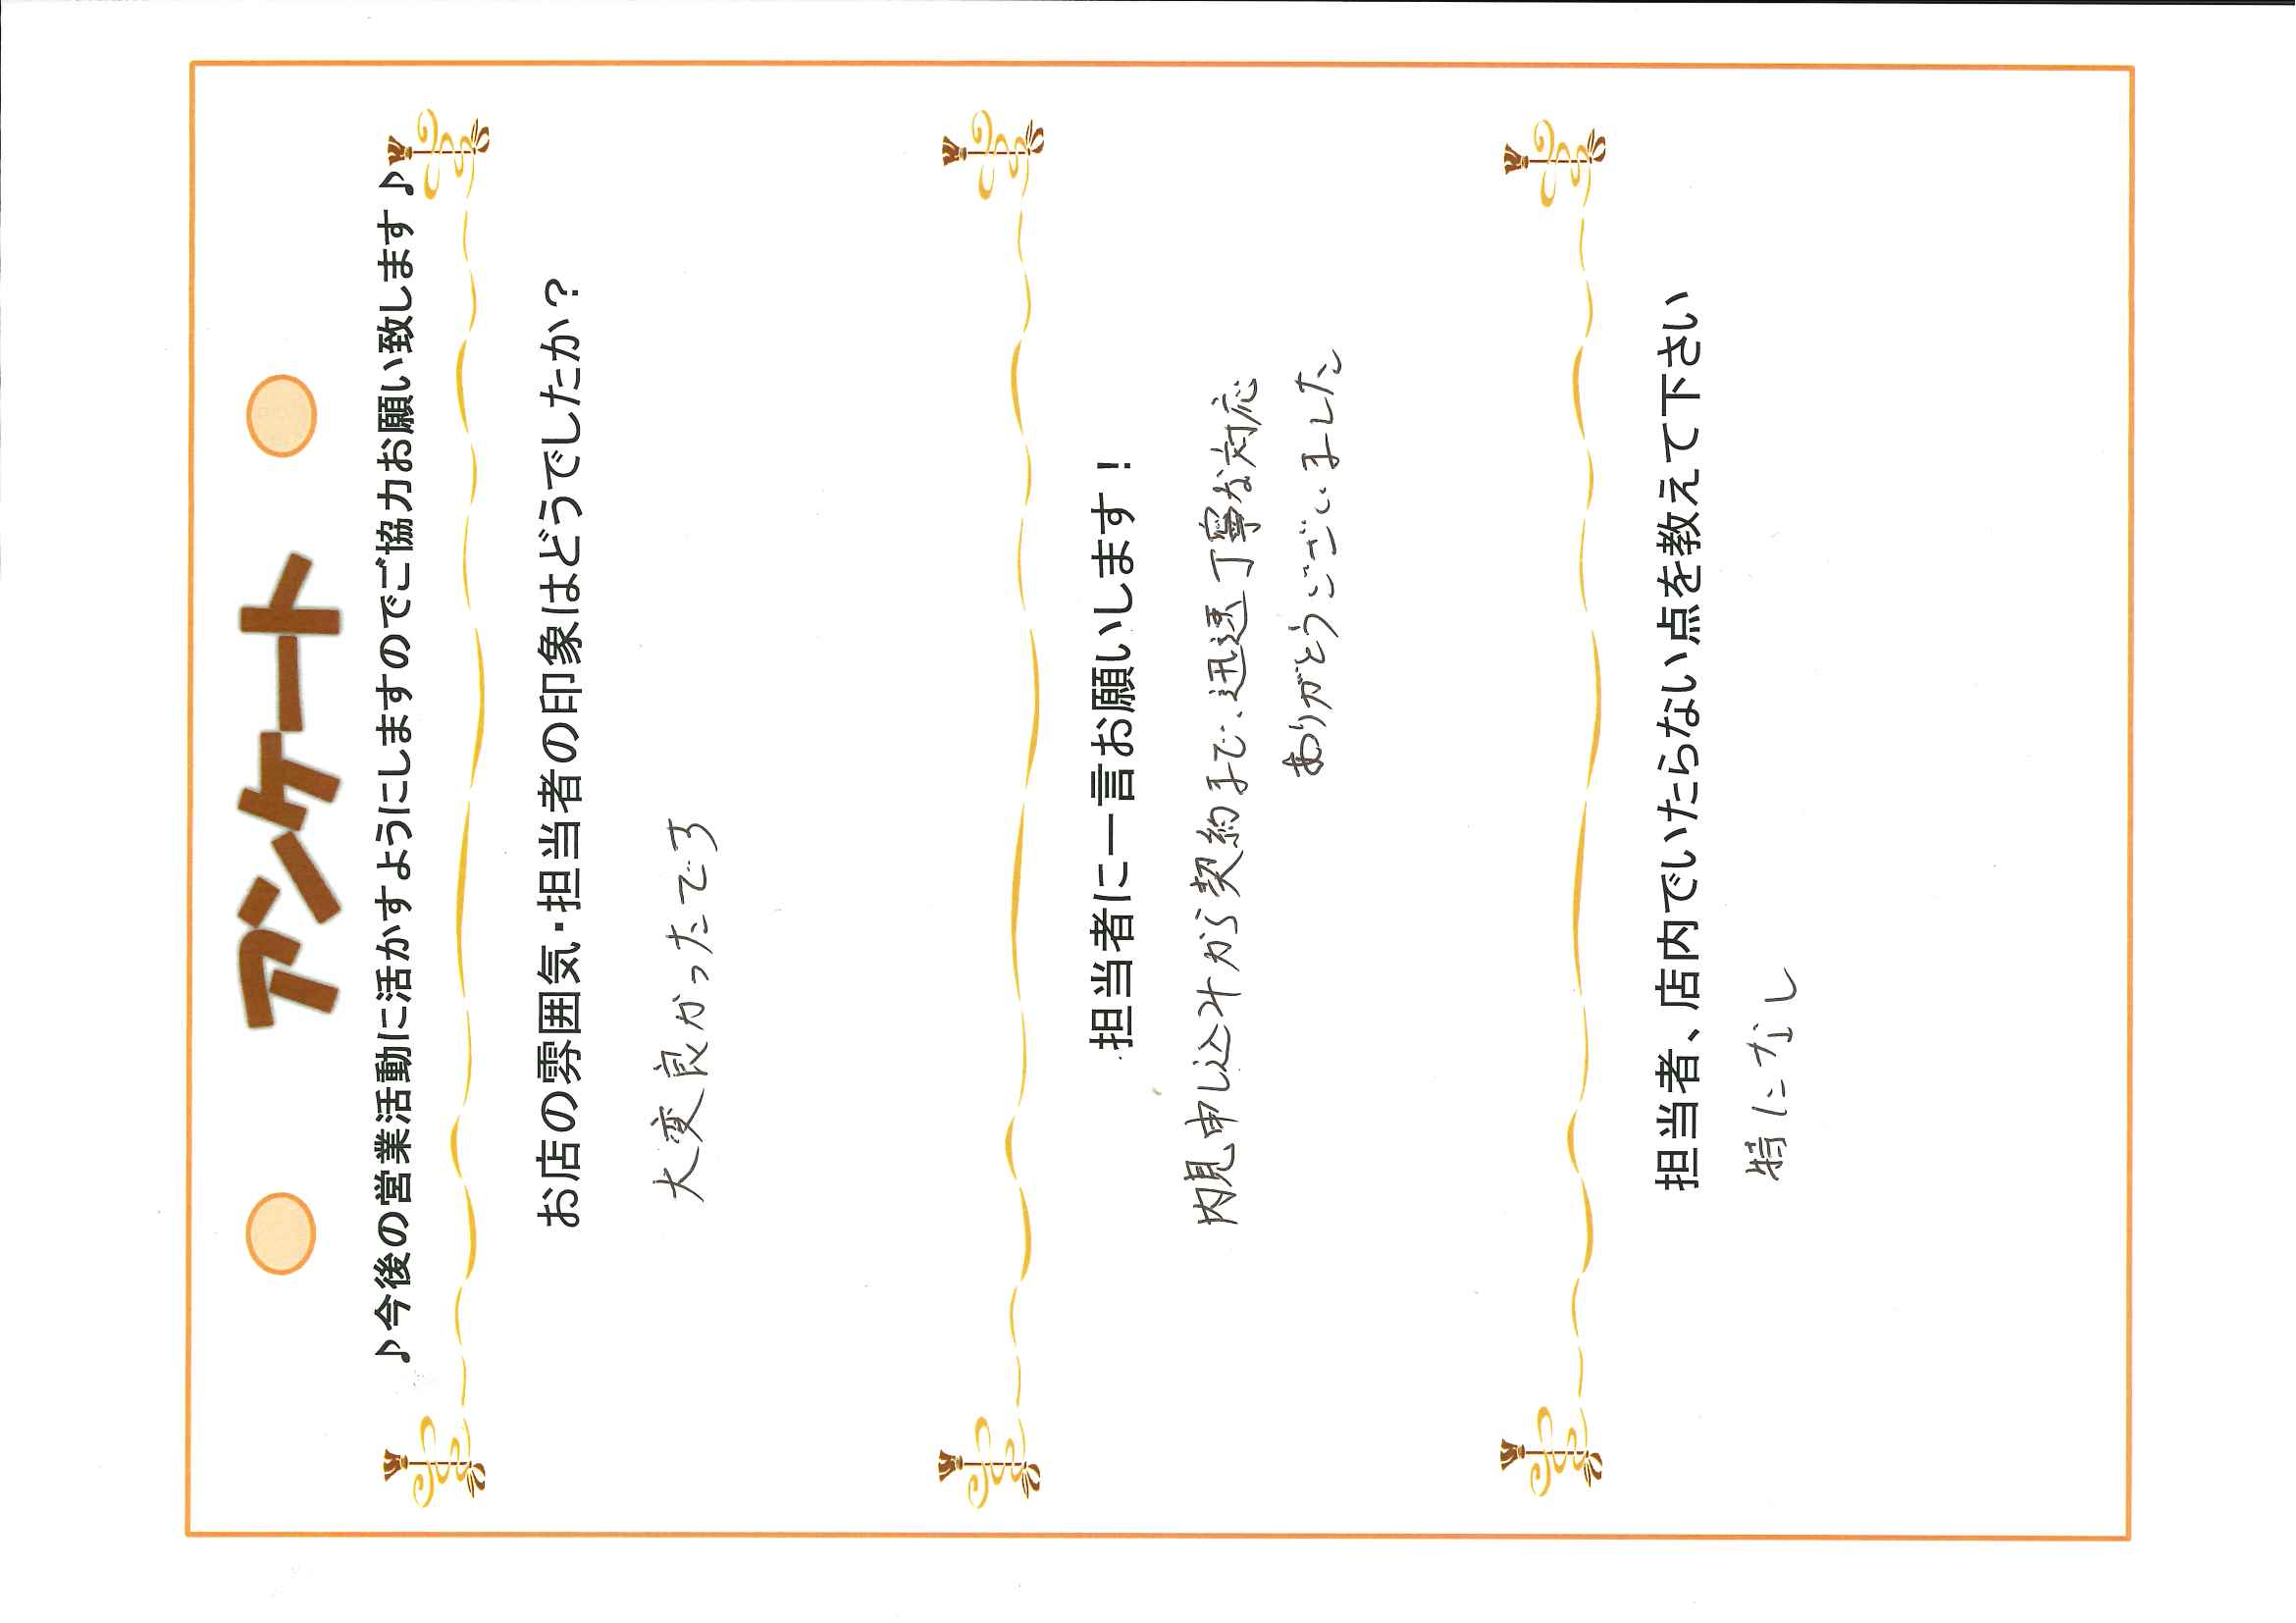 アンケート
♪今後の営業活動に活かすようにしますのでご協力お願い致します♪
お店の雰囲気・担当者の印象はどうでしたか？
大変良かったです
担当者に一言お願いします！
内見申し込みから契約まで、迅速丁寧な対応
ありがとうございました
担当者、店内でいたらない点を教えて下さい
特になし